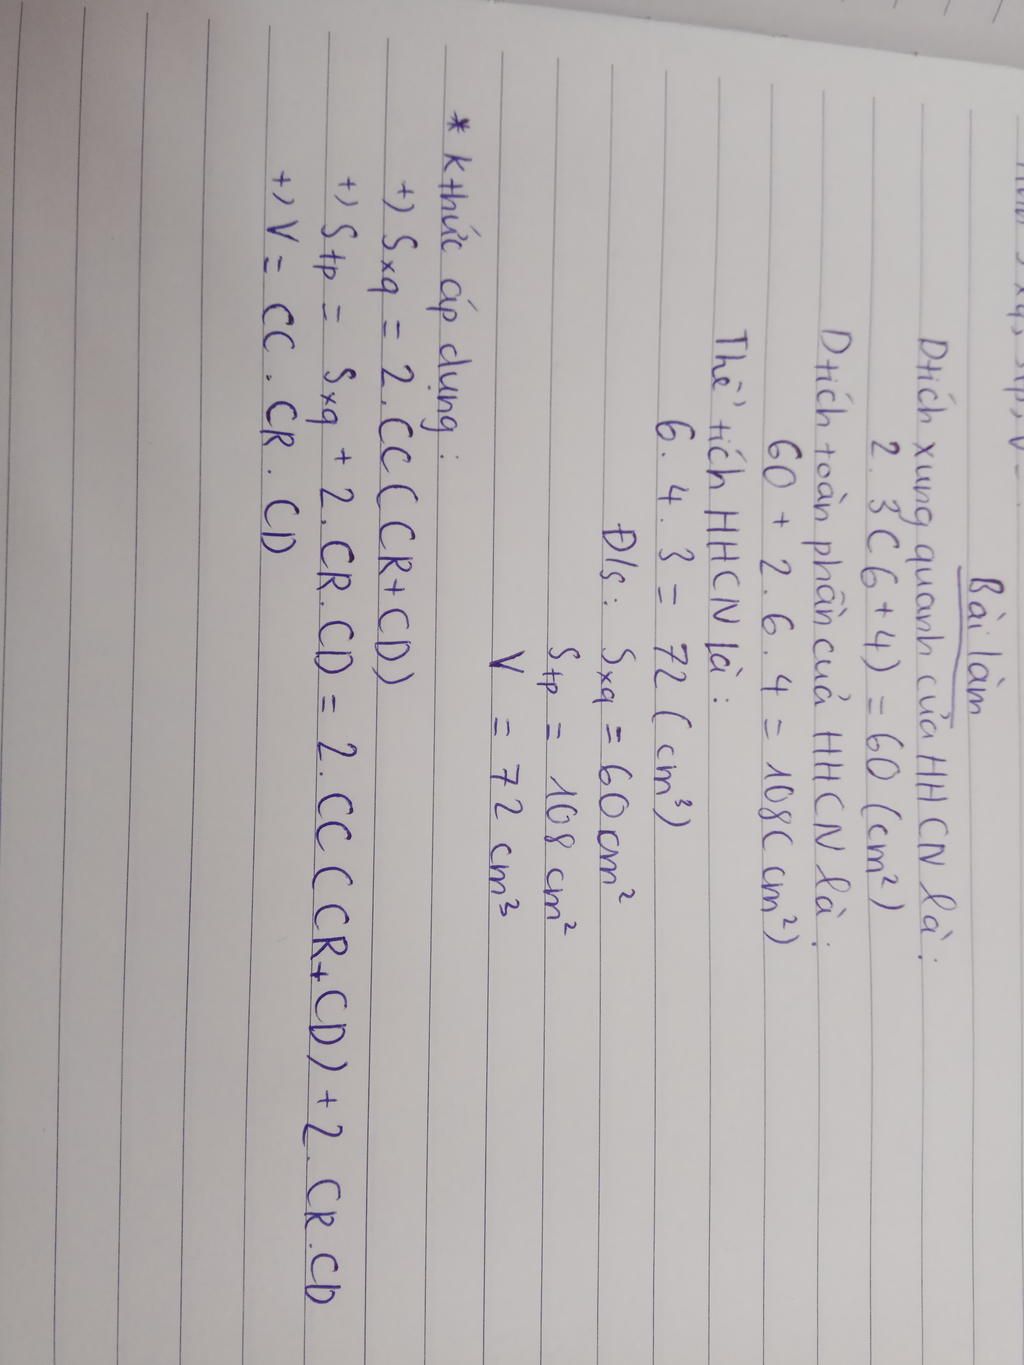 Bài làm
Dtích xung quanh của HHCN là:
2. 3(6+4) = 60 (cm²)
Dtích toàn phần của HHCN là:
60 + 2.6.4 = 108 (cm²)
Thể tích HHCN là:
6.4.3 = 72 (cm³)
Đ/s: Sxq = 60cm²
Stp = 108 cm²
V = 72 cm³
* Kthức áp dụng:
+) Sxq = 2.CC(CR+CD)
+) Stp = Sxq + 2.CR.CD = 2.CC(CR+CD)+2.CR.CD
+) V = CC.CR.CD